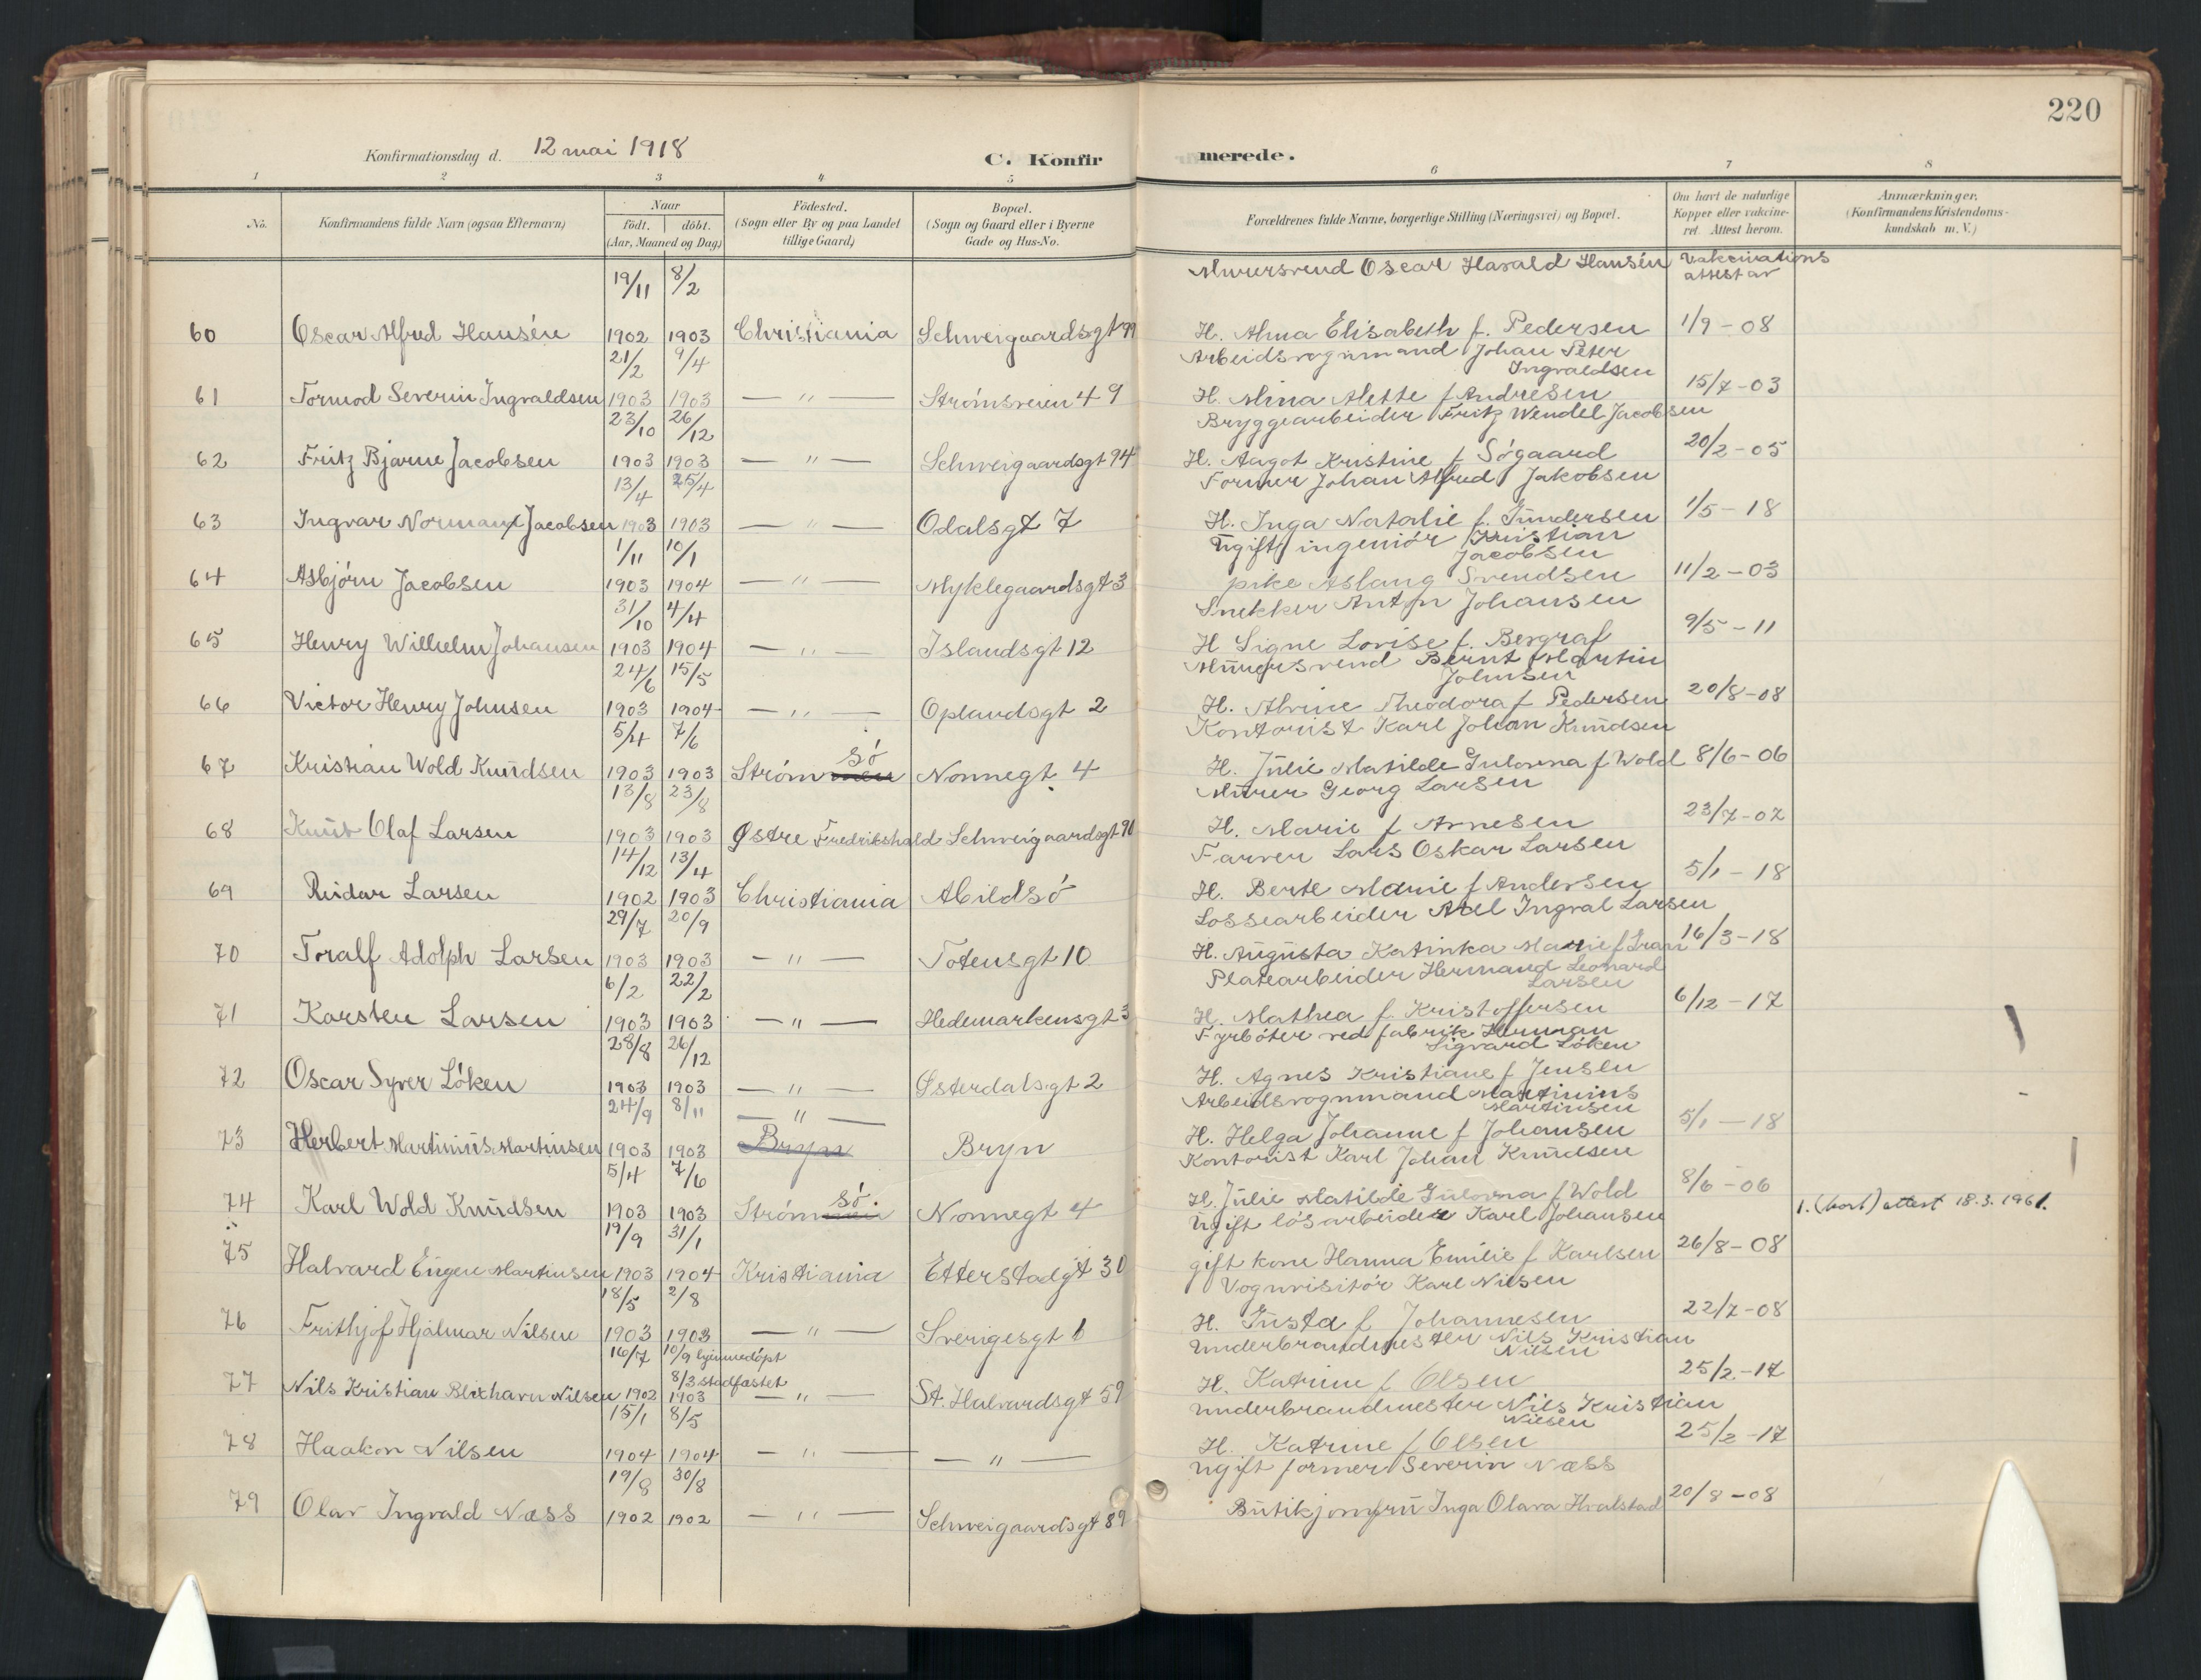 220
Konfirmationsdag d. 12 mai 1918
C. Konfirmerede.
1 2 3 4 5 6 7 8
No.
Konfirmandens fulde Navn (ogsaa Efternavn)
Naar
født. døbt.
(Aar, Maaned og Dag)
Fødested.
(Sogn eller By og paa Landet
tillige Gaard)
Bopæl.
(Sogn og Gaard eller i Byerne
Gade og Hus-No.
Forældrenes fulde Navne, borgerlige Stilling (Næringsvei) og Bopæl.
Om havt de naturlige
Kopper eller vakcine-
ret. Attest herom.
Anmærkninger.
(Konfirmandens Kristendoms-
kundskab m. V.)
19/11 8/2 Murersvend Oscar Harald Hansén Vakcinations
attest av
60 Oscar Alfred Hansén 1902 1903 Christiania Schweigaardsgt 99 H. Alma Elisabeth f. Pedersen 1/9-08
21/2 9/4 Arbeidsvognmand Johan Peter
Ingvaldsen
61 Tormod Severin Ingvaldsen 1903 1903 — " — Strømsveien 49 H. Mina Alette f Andresen 15/7-03
23/10 26/12 Bryggearbeider Fritz Wendel Jacobsen
62 Fritz Bjarne Jacobsen 1903 1903 — " — Schweigaardsgt 94 H. Aagot Kristine f Søgaard 20/2-05
13/4 25/4 Former Johan Alfred Jakobsen
63 Ingvar Normann Jacobsen 1903 1903 — " — Odalsgt 7 H. Inga Natalie f. Gundersen 1/5-18
1/11 10/1 Ugift ingeniør Kristian
Jacobsen
64 Asbjørn Jacobsen 1903 1904 — " — Myklegaardsgt 3 pike Aslaug Svendsen 11/2-03
31/10 4/4 Snekker Anton Johansen
65 Henry Wilhelm Johansen 1903 1904 — " — Islandsgt 12 H Signe Lovise f. Bergraf 9/5-11
24/6 15/5 Murersvend Bernt Martin
Johnsen
66 Victor Henry Johnsen 1903 1904 — " — Oplandsgt 2 H. Alvine Theodora f Pedersen 20/8-08
5/4 7/6 Kontorist Karl Johan Knudsen
67 Kristian Wold Knudsen 1903 1903 Strømmen sø Nonnegt. 4 H. Julie Matilde Gulovna f Wold 8/6-06
13/8 23/8 Murer Georg Larsen
68 Knut Olaf Larsen 1903 1903 Østre Fredrikshald Schweigaardsgt 90 H. Marie f Arnesen 23/7-02
14/12 13/4 Farver Lars Oskar Larsen
69 Reidar Larsen 1902 1903 Christiania Abildsø H. Berte Marie f Andersen 5/1-18
29/7 20/9 Lossearbeider Axel Ingval Larsen
70 Toralf Adolph Larsen 1903 1903 — " — Totensgt 10 H. Augusta Katinka Marie f 16/3-18
6/2 22/2 Platearbeider Hermand Leonard
Larsen
71 Karsten Larsen 1903 1903 — " — Hedemarkensgt 3 H. Mathea f. Kristoffersen 6/12-17
28/8 26/12 Fyrbøter ved fabrik Herman
Sigvard Løken
72 Oscar Syver Løken 1903 1903 — " — Østerdalsgt 2 H. Agnes Kristiane f Jensen
24/9 8/11 — " — Arbeidsvognmand Martinius
Martinsen
73 Herbert Martinius Martinsen 1903 1903 Bryn Bryn H. Helga Johanne f Johansen 5/1-18
5/4 7/6 Kontorist Karl Johan Knudsen
74 Karl Wold Knudsen 1903 1903 Strømmen sø. Nonnegt 4 H. Julie Matilde Gulovna f Wold 8/6-06 1. (bort) attest 18.3.1961.
19/9 31/1 Ugift løsarbeider Karl Johansen
75 Halvard Eugen Martinsen 1903 1904 Kristiania Etterstadgt 30 gift kone Hanna Emilie f Karlsen 26/8-08
18/5 2/8 Vognvisitør Karl Nilsen
76 Frithjof Hjalmar Nilsen 1903 1903 — " — Sverigesgt 6 H. Gusta f Johannesen 22/7-08
16/7 10/9 hjemmedøpt Underbrandmester Nils Kristian
8/3 stadfæstet Nilsen
77 Nils Kristian Blixhavn Nilsen 1902 1903 — " — St. Halvardsgt 59 H. Katrine f Olsen 25/2-17
15/1 8/5 Underbrandmester Nils Kristian
Nilsen
78 Haakon Nilsen 1904 1904 — " — — " — H. Katrine f Olsen 25/2-17
19/8 30/8 Ugift former Severin Næss
79 Olav Ingvald Næss 1902 1902 — " — Schweigaardsgt 89 Butikjomfru Inga Olava Hvalstad 20/8-08